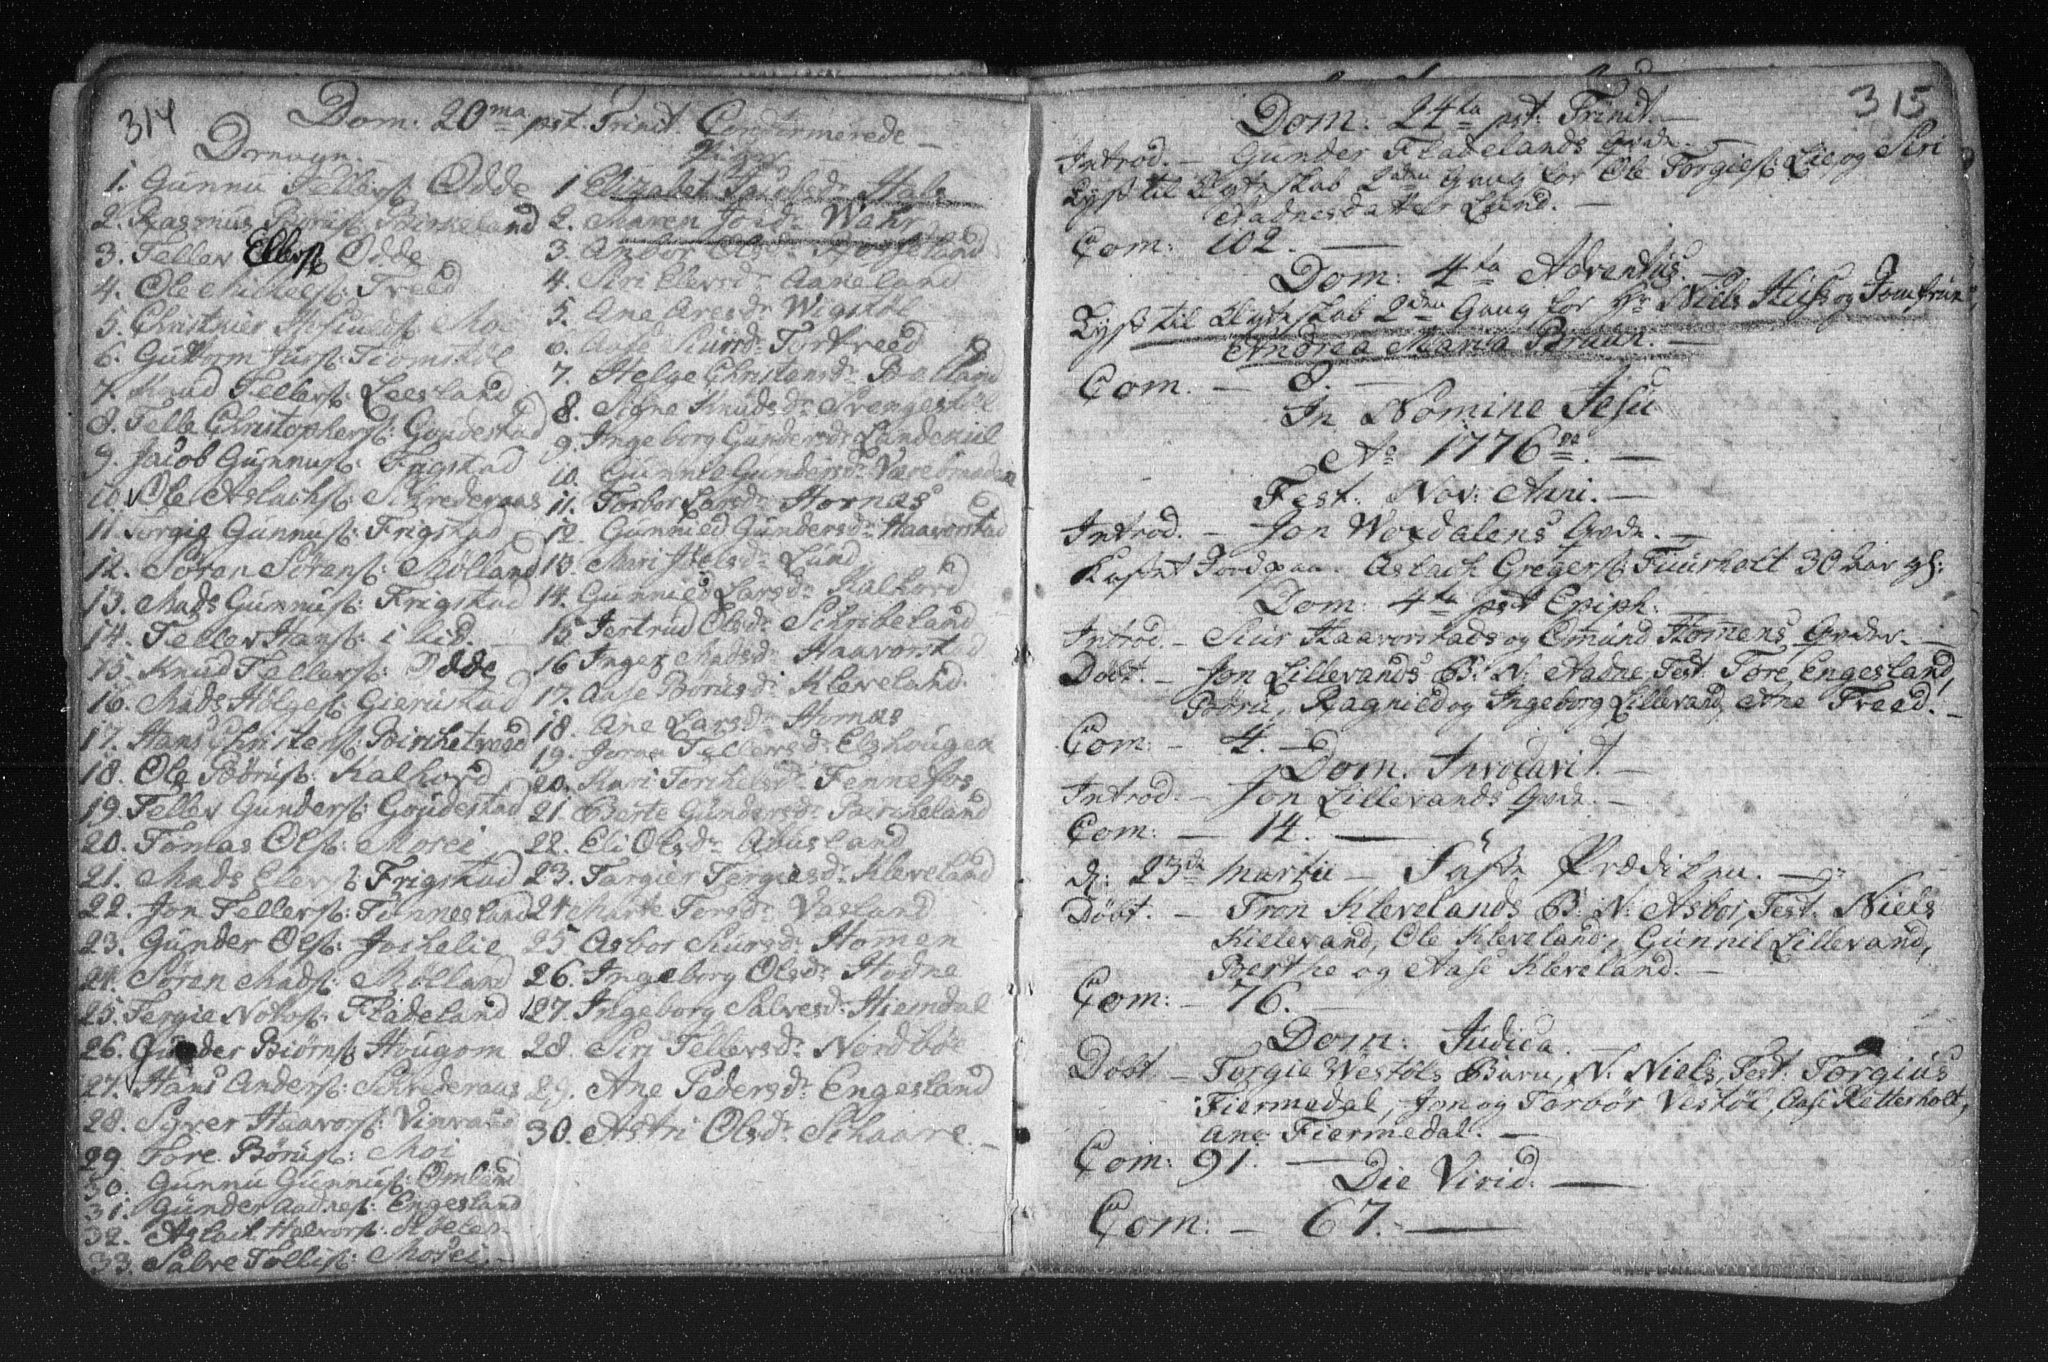 314
Dom: 20ma pst. Trinit. Confirmerede
Drenge. Piger
1. Gunnu Tellefs: Odde
2. Rasmus Børus: Birkeland
3. Tellev Ellefs: Odde
4. Ole Mikkels: Treed
5. Christnier Moe
6. Guttorm Jurs: Tiomstøl
7. Knud Tellefs: Leesland
8. Telle Christophers: Goudestad
9. Jacob Gunnus: Frigstad
10. Ole Aslachs: Schrederaas
11. Torgie Gunnus: Frigstad
12. Søren Sørens: Mølland
13. Mads Gunnus: Frigstad
14. Tellev Hans: i Lid.
15. Knud Tellefs: Odde
16. Mads Holges: Gierustad
17. Hans Christens: Birchetveed
18. Ole Børus: Kalhord
19. Tellev Gunders: Goudestad
20. Tomas Ols: Morei
21. Mads Elevs: Frigstad
22. Jon Tellefs: Tinnesland
23. Gunder Ols: Jochelie
24. Søren Mads: Mølland
25. Tergie Fladeland
26. Gunder Biørns: Hougom
27. Hans Anders: Schrederaas
28. Syver Haavors:
29. Tore Børus: Moi
30. Gunnu Gunnus: Omland
31. Gunder Aadnes: Engesland
32. Aslach Halvors:
33. Salve Tollis: Mosei.
1 Elizabet Jacobsdr. Hals
2. Maren Wahr
3. Anbor Olsdr.
4. Siri Elevsdr. Aaneland
5. Ane Aresdr. Wigstøl
6. Aase Siursdr. Tortveed
7. Helge Christensdr. Røilland
8. Signe Knudsdr. Svengestøl
9. Ingeborg Gundersdr. Landekiil
10. Gunnie Gundersdr.
11. Torbor Larsdr. Hornæs
12. Gunnied Gundersdr. Haavorstad
13. Mari Lund
14. Gunnied Larsdr. Kalhord
15 Jertrud Olsdr. Schribeland
16 Inger Madsdr. Haavorstad
17. Aase Børusd: Kleveland.
18. Ane Larsdr. Hornæs
19. Jorna Tellevsdr. Elshougen
20. Kari Torchelsdr. Fennefos
21. Berte Gundersdr. Bircheland
22. Eli Olsdr. Abusland
23. Targier Tergiesdr. Kleveland
24 Marte Torsdr. Vasland
25 Asbor Siursdr. Homen
26. Ingeborg Olsdr. Hodne
27. Ingeborg Salvesdr. Hiemdal
28. Siri Tellevsdr. Nordbøe
29. Ane Pedersdr. Engesland
30. Astri Olsdr. Schaare.
315
Dom: 24ta pst: Trinit.
Introd. – Gunder Fladelands Qvde.
Lyst til Ægteskab 2den Gang for Ole Torgies: Lie og Siri
Aadnesdatter Lund.
Com: 102.
Dom: 4ta Adventus.
Lyst til Ægteskab 2den Gang for Hr Niels Huss og Jomfrue
Andrea Maria Bruun.
Com. – 8.
In Nomine Jesu
Ao 1776
Fest: Nov: Anni.
Introd. – Jon Woxdalens Qvde.
Kastet Jord paa Aslach Gregers: Fuurholt 30 Aar gl:
Dom: 4ta pst Epiph:
Introd – Siur Haavorstads og Omund Homens Qvder.
Døbt. – Jon Lillevands B: N: Aadne, Test: Tore Engesland,
Børu, Ragnied og Ingeborg Lillevand, Ane Treed.
Com: – 4.
Dom. Invocavit.
Introd. – Jon Lillevands Qvde.
Com: – 14.
d: 23de Martii – Faste Prædiken.
Døbt. – Tron Klevelands B: N: Asbor, Test: Niels
Kielevand, Ole Kleveland, Gunnil Lillevand,
Berthe og Aase Kleveland.
Com: – 76.
Dom: Judica.
Døbt – Torgie Westøls Barn, N: Niels, Test: Torgius
Fiermedal, Jon og Torbør Vestøl, Aase Retterholt,
Ane Fiermedal.
Com: 91.
Die Virid.
Com: – 67.